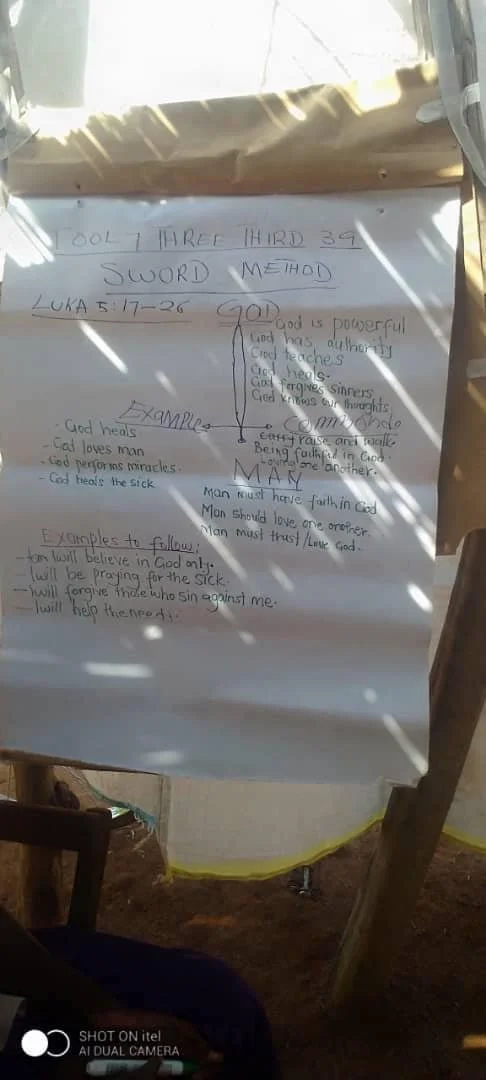 TOOL 7 THREE THIRD 34
SWORD METHOD
LUKA 5:17-26
GOD
God is powerful
God has authority
God teaches
God heals.
God forgives sinners
God knows our thoughts
Example
- God heals
- God loves man
- God performs miracles.
- God heals the sick
Commands
raise and walk
Being faithful in God.
Loving one another.
MAN
Man must have faith in God
Man should love one another.
Man must trust/Love God.
Examples to follow:
I will believe in God only.
- I will be praying for the sick.
- I will forgive those who sin against me.
- I will help the
SHOT ON itel
AI DUAL CAMERA